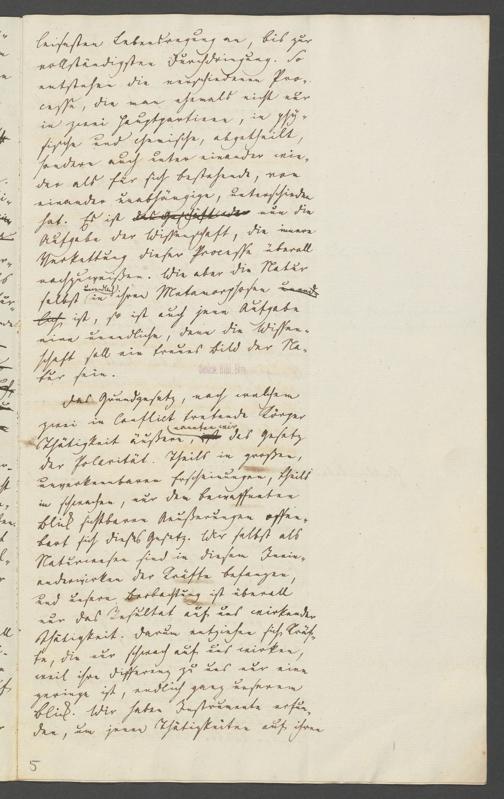 leisesten Lebensregung an, bis zur
vollständigsten Durchdringung. So
entstehen die verschiedenen Pro-
cesse, die man ehemals nicht nur
in zwei Hauptpartieen, in phy-
sische und chemische, abgetheilt,
sondern auch unter einander wie-
der als für sich bestehende, von
einander unabhängige, unterschieden
hat. Es ist das Geschäft oder nun die
Aufgabe der Wissenschaft, die innere
Verkettung dieser Processe überall
nachzuweißen. Wie aber die Natur
selbst unendlich in ihren Metamorphosen unend-
lich ist, so ist auch jene Aufgabe
eine unendliche, denn die Wissen-
schaft soll ein treues Bild der Na-
tur sein.
Das Grundgesetz, nach welchem
zwei in Conflict tretende Körper
Thätigkeit äußern, nennen wir ist das Gesetz
der Polarität. Theils in großen,
unverkennbaren Erscheinungen, theils
in schwachen, nur dem bewaffneten
Blick sichtbaren Äußerungen offen-
bart sich dieses Gesetz. Wir selbst als
Naturwesen sind in diesem Inein-
anderwirken der Kräfte befangen,
und unsere Beobachtung ist überall
nur das Resultat auf uns wirkender
Thätigkeit. Darum entziehen sich Kräf-
te, die nur schwach auf uns wirken,
weil ihre Differenz zu uns nur eine
geringe ist, endlich ganz unserem
Blick. Wir haben Instrumente erfun-
den, um jene Thätigkeiten auf ihren
5